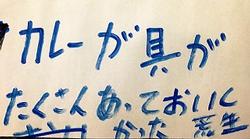 カレーが具が
たくさんあっておいし
かった